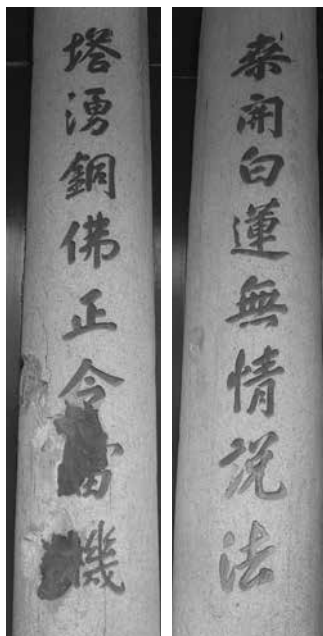 桑開白蓮無情説法
塔湧銅佛正令當機